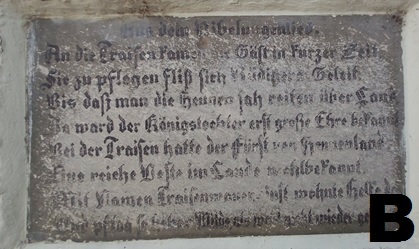 Aus dem Nibelungenlied.
An die Traisen kamen die Gäst in kurzer Zeit
Sie zu pflegen fliß sich Rüdigers Geleit
Bis daß man die Heunen sah reiten über Land
Da ward der Königstochter erst große Ehre bekannt
Bei der Traisen hatte der Fürst von Heunenland
Eine reiche Veste im Lande wohlbekannt
Mit Namen Traisenmauer, wohnte Helke
Und pflag so
B